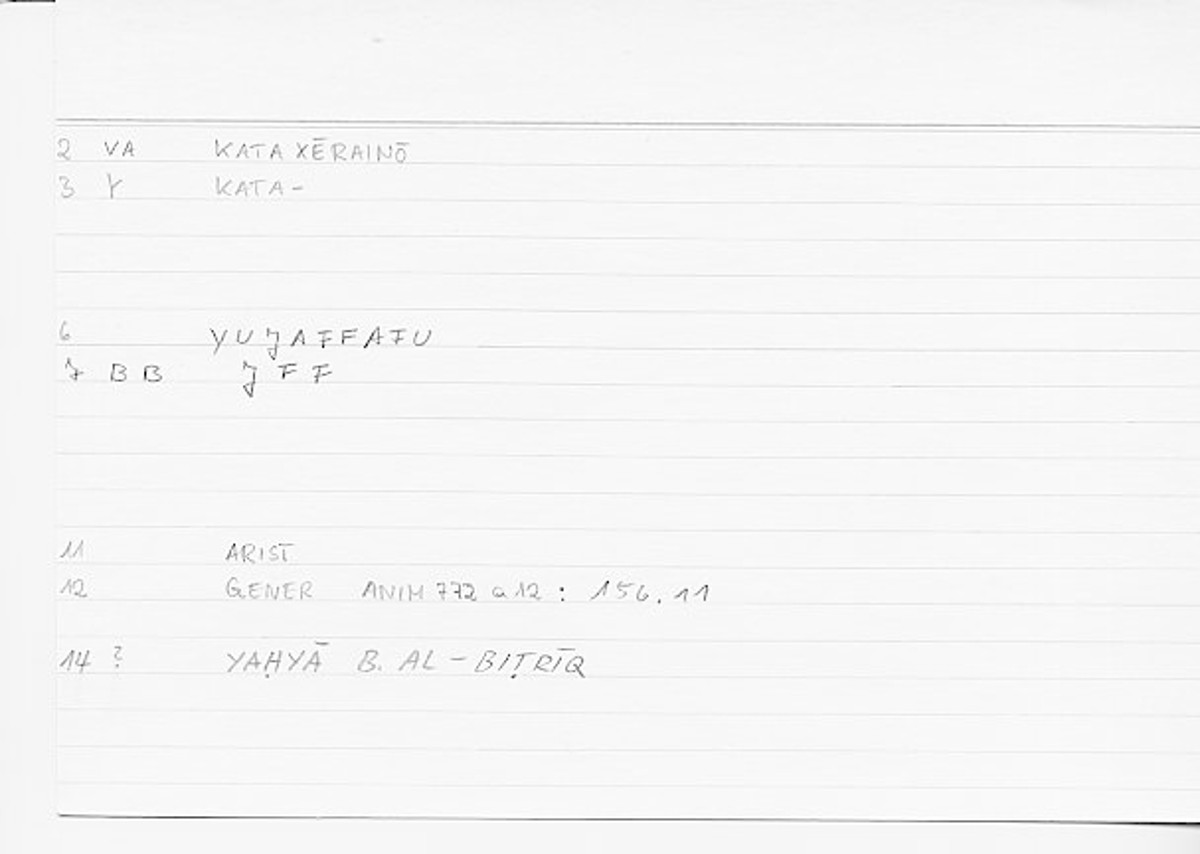 2 VA KATAXĒRAINŌ
3 Y KATA-
6 YUJAFFAFU
7 BB JFF
11 ARIST
12 GENER ANIM 772 a 12 : 156.11
14 ? YAḤYĀ B. AL-BIṬRĪQ